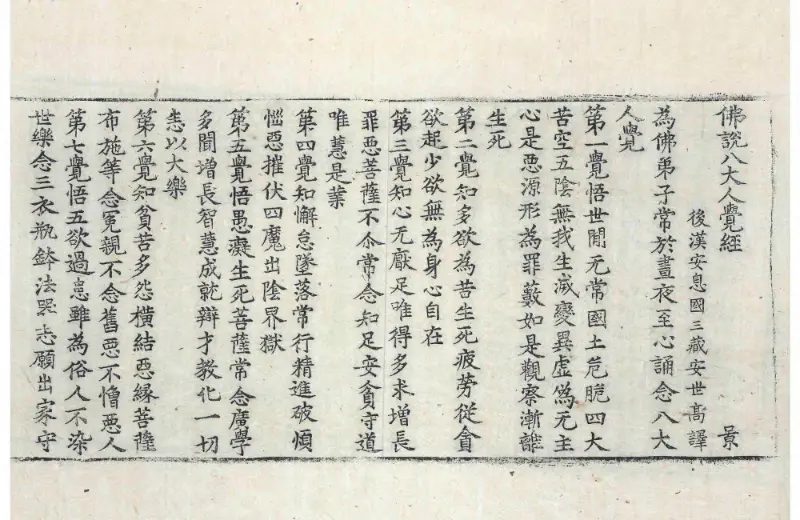 佛說八大人覺經 景
後漢安息國三藏安世高譯
為佛弟子常於晝夜至心誦念八大
人覺
第一覺悟世間无常國土危脆四大
苦空五陰無我生滅變異虛偽无主
心是惡源形為罪藪如是觀察漸離
生死
第二覺知多欲為苦生死疲勞從貪
欲起少欲無為身心自在
第三覺知心无厭足唯得多求增長
罪惡菩薩不尒常念知足安貧守道
唯慧是業
第四覺知懈怠墜落常行精進破煩
惱惡摧伏四魔出陰界獄
第五覺悟愚癡生死菩薩常念廣學
多聞增長智慧成就辯才教化一切
悉以大樂
第六覺知貧苦多怨橫結惡緣菩薩
布施等念冤親不念舊惡不憎惡人
第七覺悟五欲過患雖為俗人不染
世樂念三衣瓶鉢法器志願出家守